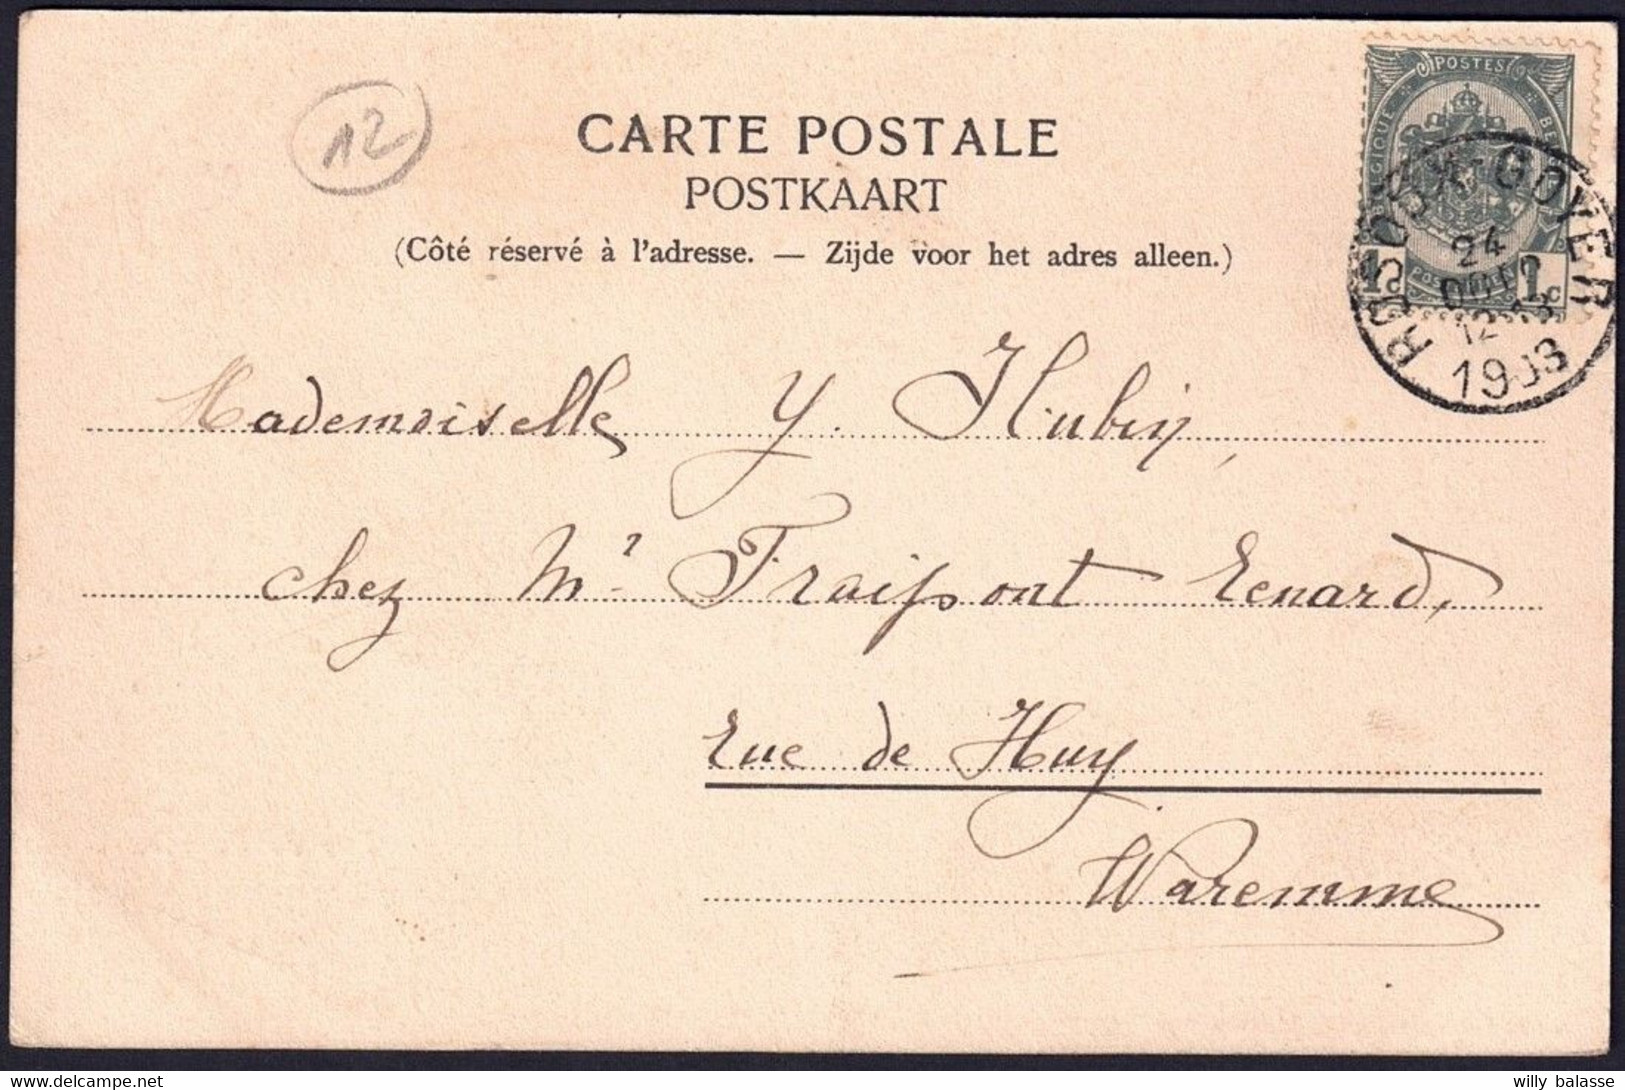 12
CARTE POSTALE
POSTKAART
(Côté réservé à l'adresse. — Zijde voor het adres alleen.)
POSTES
1c 1c
ROSOUX-GOYER
24
12
1903
Mademoiselle Y. Hubin,
chez Mr Fraipont Renard,
Rue de Huy
Waremme
willy balasse